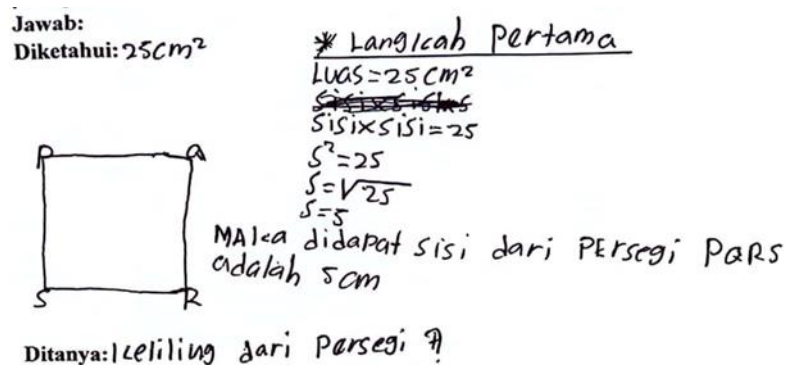 Jawab:
Diketahui: 25cm²
* Langkah Pertama
Luas = 25 cm²
sisi x sisi = 25
s² = 25
s = √25
s = 5
P Q
S R
MAka didapat sisi dari PErsegi PQRS
adalah 5 cm
Ditanya: keliling dari Persegi ?